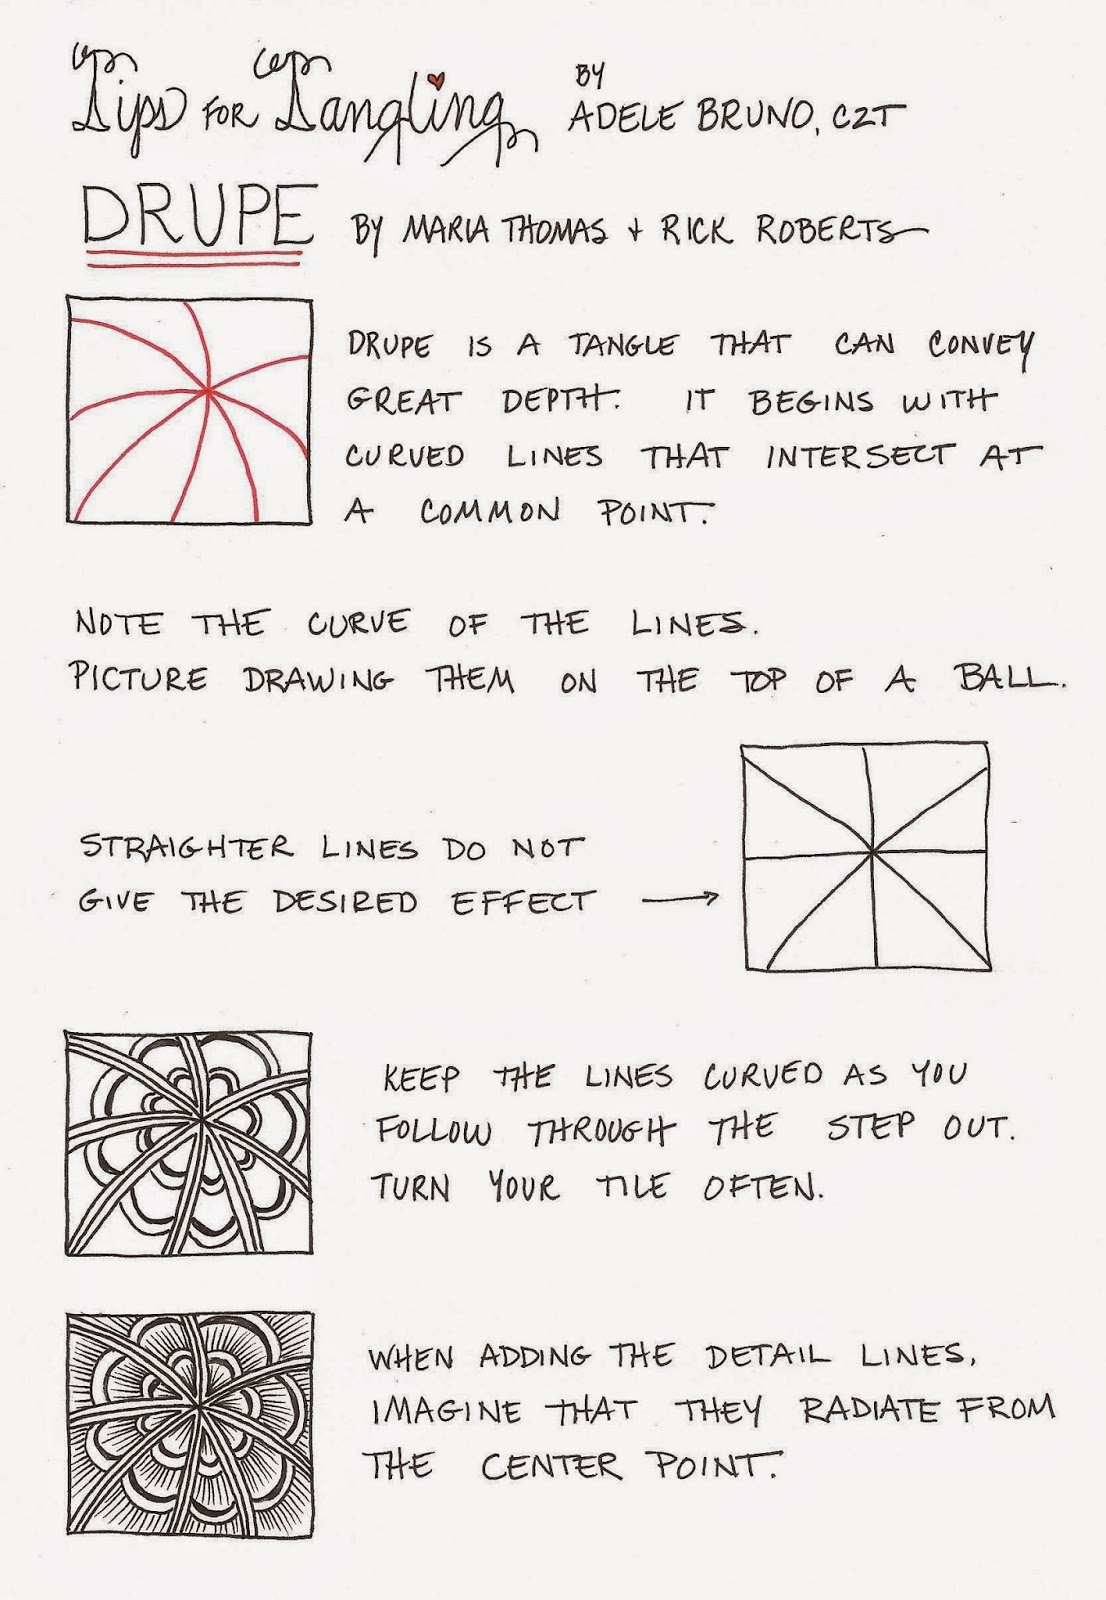 Tips for Tangling BY
ADELE BRUNO, CZT
DRUPE BY MARIA THOMAS + RICK ROBERTS
DRUPE IS A TANGLE THAT CAN CONVEY
GREAT DEPTH. IT BEGINS WITH
CURVED LINES THAT INTERSECT AT
A COMMON POINT.
NOTE THE CURVE OF THE LINES.
PICTURE DRAWING THEM ON THE TOP OF A BALL.
STRAIGHTER LINES DO NOT
GIVE THE DESIRED EFFECT →
KEEP THE LINES CURVED AS YOU
FOLLOW THROUGH THE STEP OUT.
TURN YOUR TILE OFTEN.
WHEN ADDING THE DETAIL LINES,
IMAGINE THAT THEY RADIATE FROM
THE CENTER POINT.